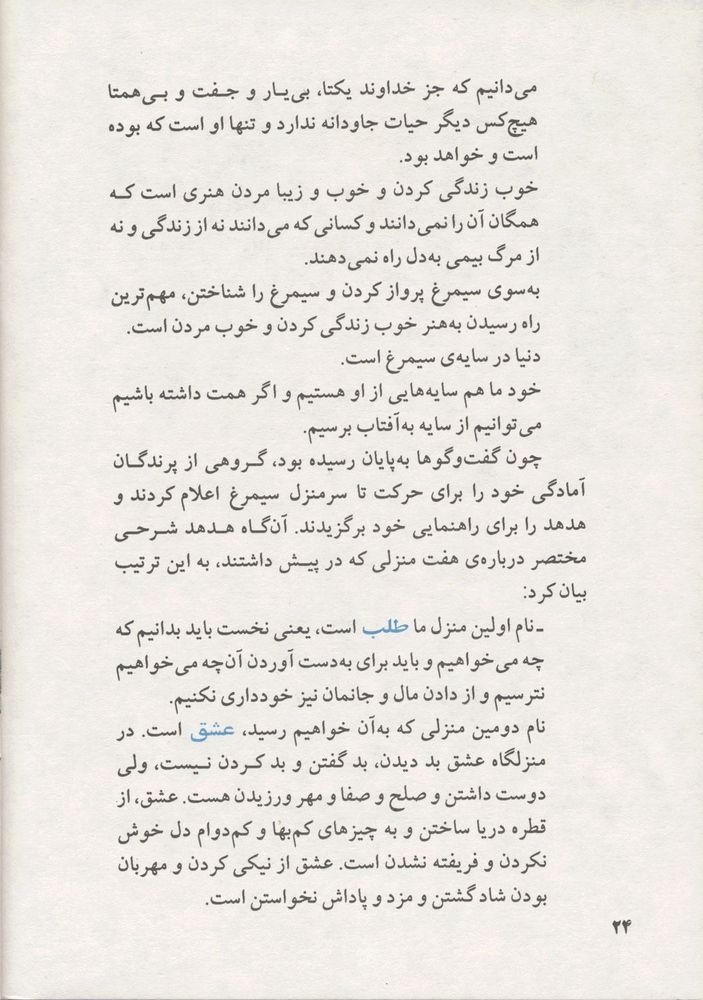 می‌دانیم که جز خداوند یکتا، بی‌یـار و جـفت و بـی‌همتا
هیچ‌کس دیگر حیات جاودانه ندارد و تنها او است که بوده
است و خواهد بود.
خوب زندگی کردن و خوب و زیبا مردن هنری است کـه
همگان آن را نمی‌دانند و کسانی که می‌دانند نه از زندگی و نه
از مرگ بیمی به‌دل راه نمی‌دهند.
به‌سوی سیمرغ پرواز کردن و سیمرغ را شناختن، مهم‌ترین
راه رسیدن به‌هنر خوب زندگی کردن و خوب مردن است.
دنیا در سایه‌ی سیمرغ است.
خود ما هم سایه‌هایی از او هستیم و اگر همت داشته باشیم
می‌توانیم از سایه به‌آفتاب برسیم.
چون گفت‌وگوها به‌پایان رسیده بود، گـروهی از پرندگـان
آمادگی خود را برای حرکت تا سرمنزل سیمرغ اعلام کردند و
هدهد را برای راهنمایی خود برگزیدند. آن‌گـاه هـدهد شـرحـی
مختصر درباره‌ی هفت منزلی که در پیـش داشتند، به این ترتیب
بیان کرد:
ـ نام اولین منزل ما طلب است، یعنی نخست باید بدانیم که
چه می‌خواهیم و باید برای به‌دست آوردن آن‌چه می‌خواهیم
نترسیم و از دادن مال و جانمان نیز خودداری نکنیم.
نام دومین منزلی که به‌آن خواهیم رسید، عشق است. در
منزلگاه عشق بد دیدن، بد گفتن و بد کـردن نـیست، ولی
دوست داشتن و صلح و صفا و مهر ورزیدن هست. عشق، از
قطره دریا ساختن و به چیزهای کم‌بها و کم‌دوام دل خوش
نکردن و فریفته نشدن است. عشق از نیکی کردن و مهربان
بودن شاد گشتن و مزد و پاداش نخواستن است.
۲۴